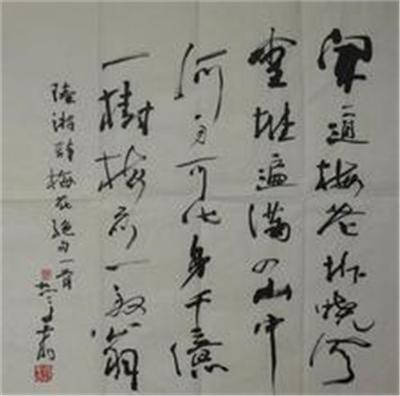 闻道梅花坼晓风
雪堆遍满四山中
何方可化身千億
一樹梅前一放翁
陸游詩梅花絶句一首